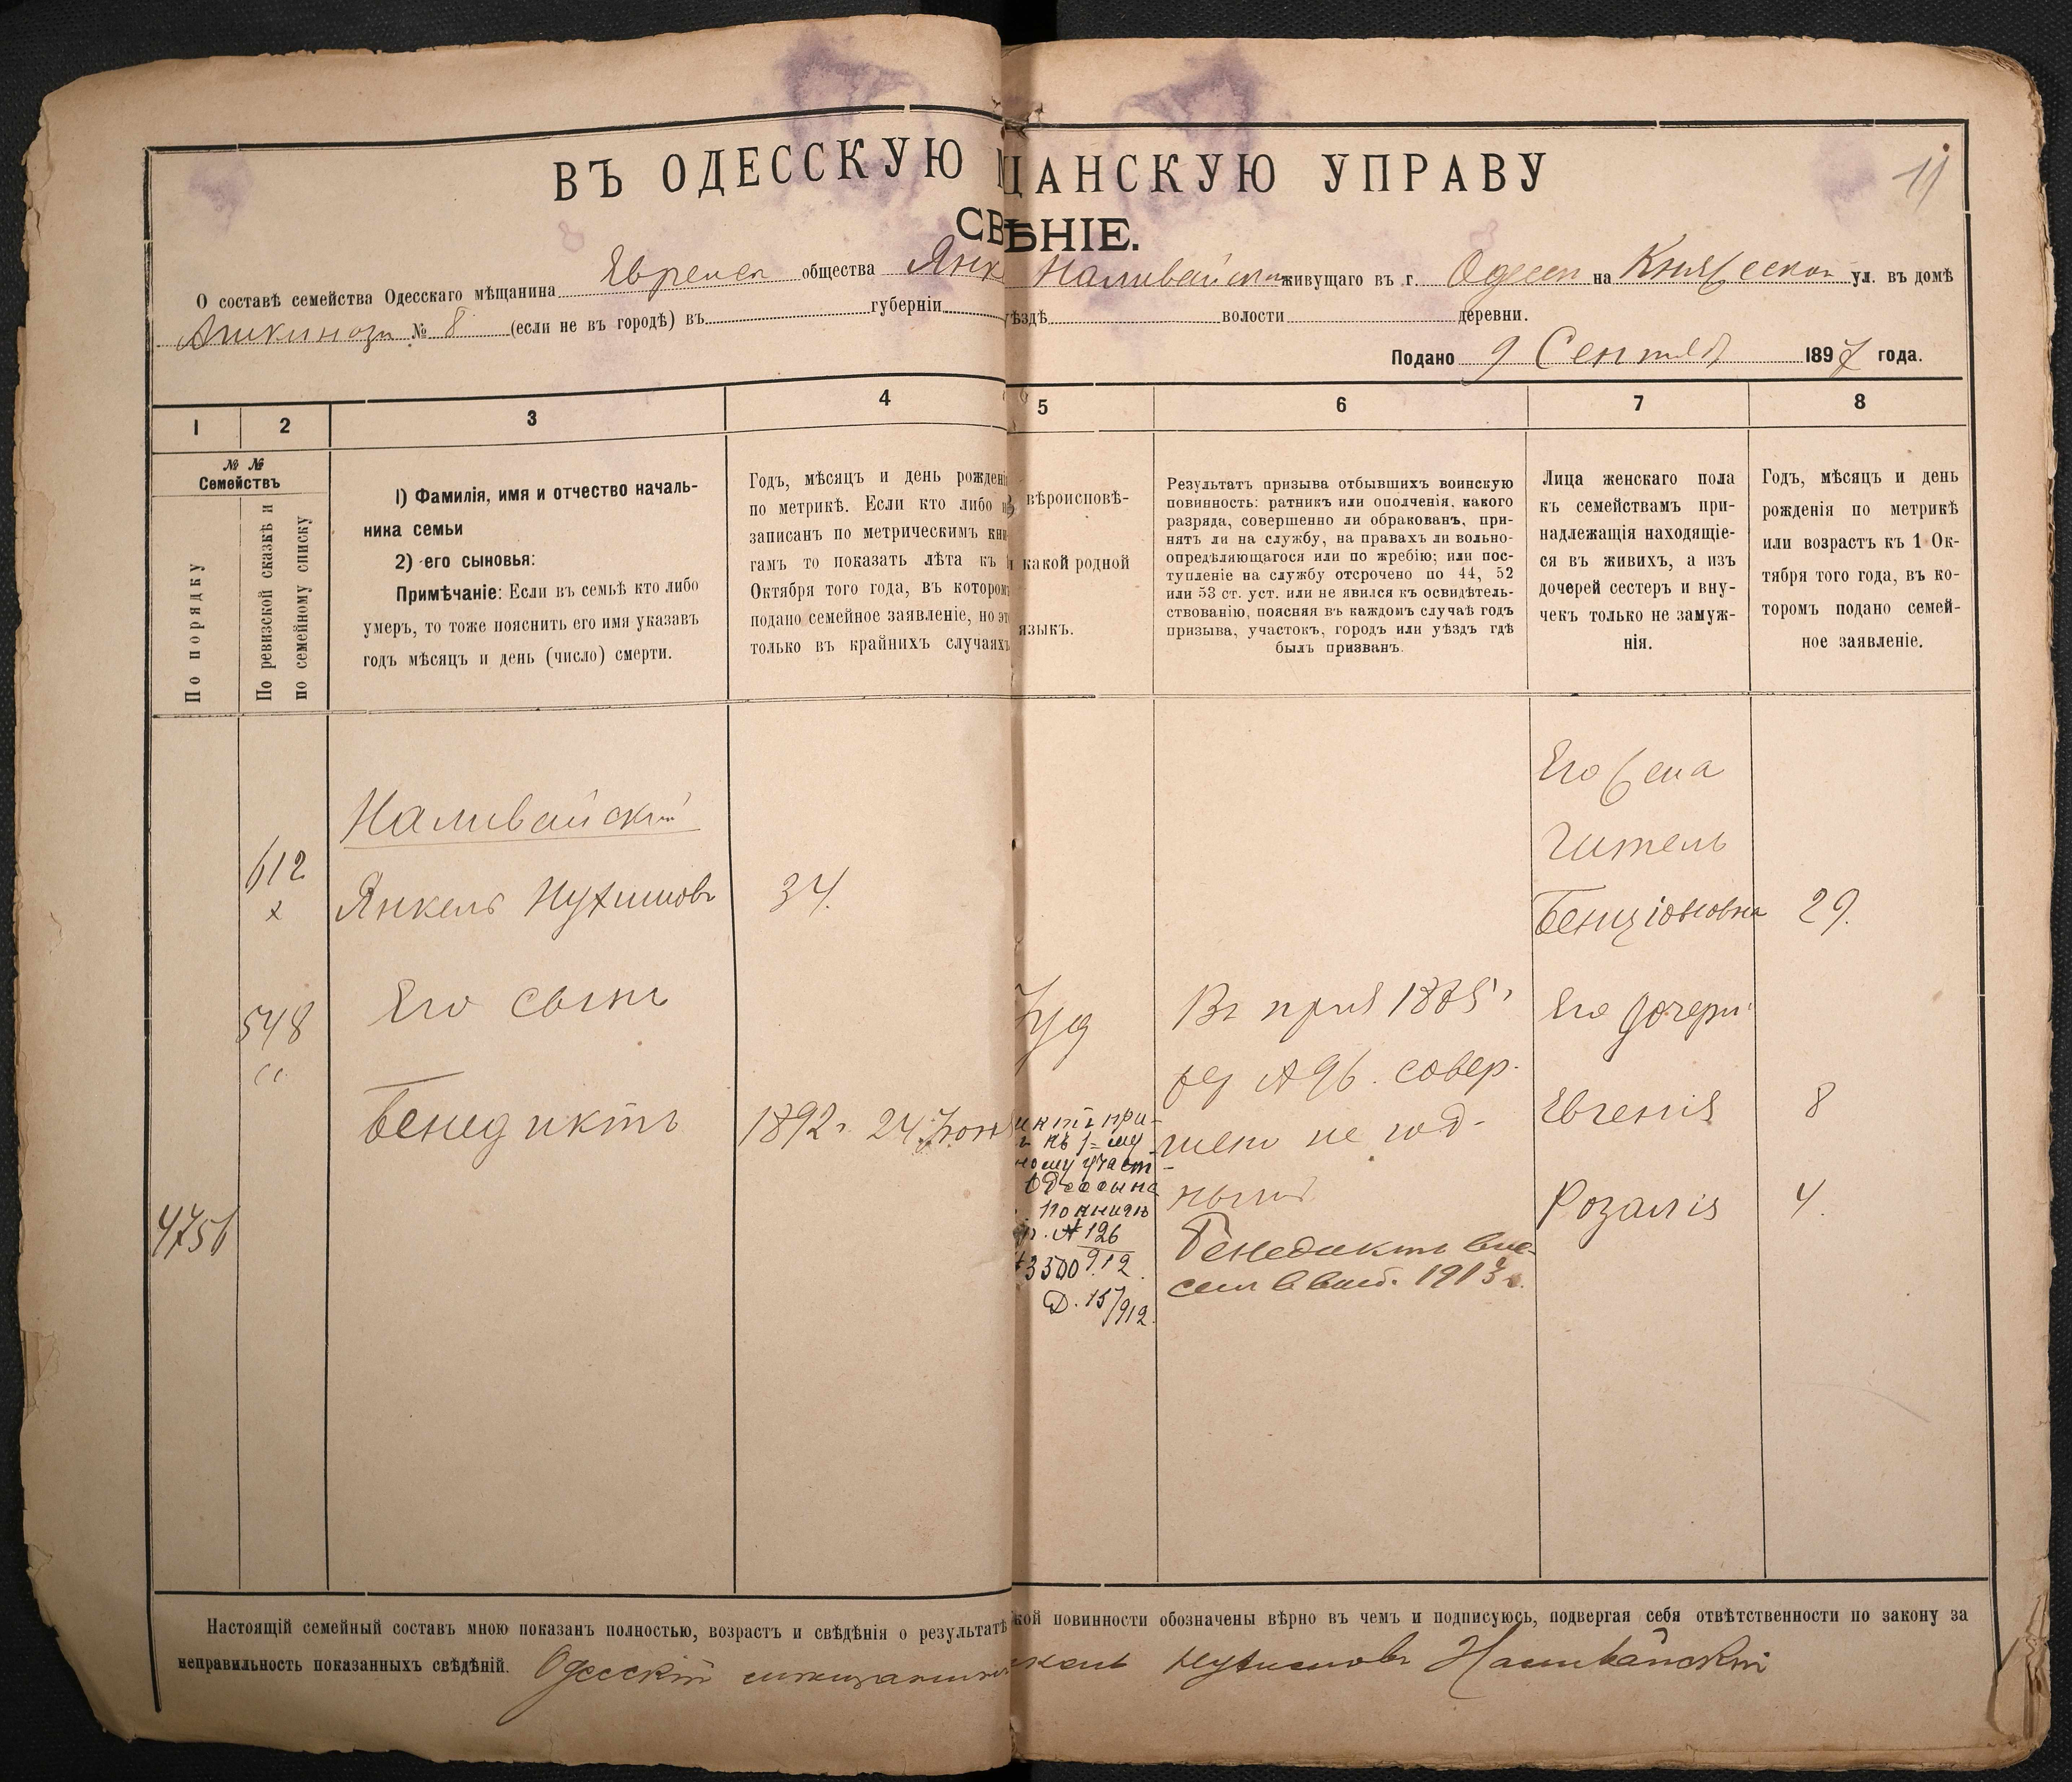 ВЪ ОДЕССКУЮ ЩАНСКУЮ УПРАВУ
11
СВѢНІЕ.
О составѣ семейства Одесскаго мѣщанина Евреиск общества Янк Наливайски живущаго въ г. Одессѣ на Княжеской ул. въ домѣ
№ 8 (если не въ городѣ) въ губерніи уѣздѣ волости деревни.
Подано 9 Сентяб 1897 года.
1 2 3 4 5 6 7 8
№ № Семействъ
По порядку
По ревизской сказкѣ и по семейному списку
1) Фамилія, имя и отчество началь-
ника семьи
2) его сыновья:
Примѣчаніе: Если въ семьѣ кто либо
умеръ, то тоже пояснить его имя указавъ
годъ мѣсяцъ и день (число) смерти.
Годъ, мѣсяцъ и день рождені
по метрикѣ. Если кто либо н
записанъ по метрическимъ кни
гамъ то показать лѣта къ 1
Октября того года, въ которомъ
подано семейное заявленіе, но эт
только въ крайнихъ случаяхъ
вѣроисповѣ-
какой родной
языкъ.
Результатъ призыва отбывшихъ воинскую
повинность: ратникъ или ополченія, какого
разряда, совершенно ли обракованъ, при-
нятъ ли на службу, на правахъ ли вольно-
опредѣляющагося или по жребію; или пос-
тупленіе на службу отсрочено по 44, 52
или 53 ст. уст. или не явился къ освидѣтель-
ствованію, поясняя въ каждомъ случаѣ годъ
призыва, участокъ, городъ или уѣздъ гдѣ
былъ призванъ.
Лица женскаго пола
къ семействамъ при-
надлежащія находящіе-
ся въ живихъ, а изъ
дочерей сестеръ и вну-
чекъ только не замуж-
нія.
Годъ, мѣсяцъ и день
рожденія по метрикѣ
или возрастъ къ 1 Ок-
тября того года, въ ко-
торомъ подано семей-
ное заявленіе.
Наливайскій
612
х
Янкель Нухимовъ
34.
548
Его сынъ
Бенедиктъ
1892 г. 24 Іюня
4756
Іуд
иктъ при-
къ 1-му
ному участ-
Одессы на
По книгѣ
№ 126
3500 912.
Д. 15/912.
Въ приз 1885 г
№ 96. совер-
шено не год-
ный
Бенедиктъ вне-
сенъ 1913 г.
Его жена
Гитель
Бенціоновна 29.
Его дочери
Евгенія 8
Розалія 4.
Настоящій семейный составъ мною показанъ полностью, возрастъ и свѣдѣнія о результатѣ кой повинности обозначены вѣрно въ чемъ и подписуюсь, подвергая себя отвѣтственности по закону за
неправильность показанныхъ свѣдѣній. Одесскій мѣщанинъ кель Нухимовъ Наливайскій